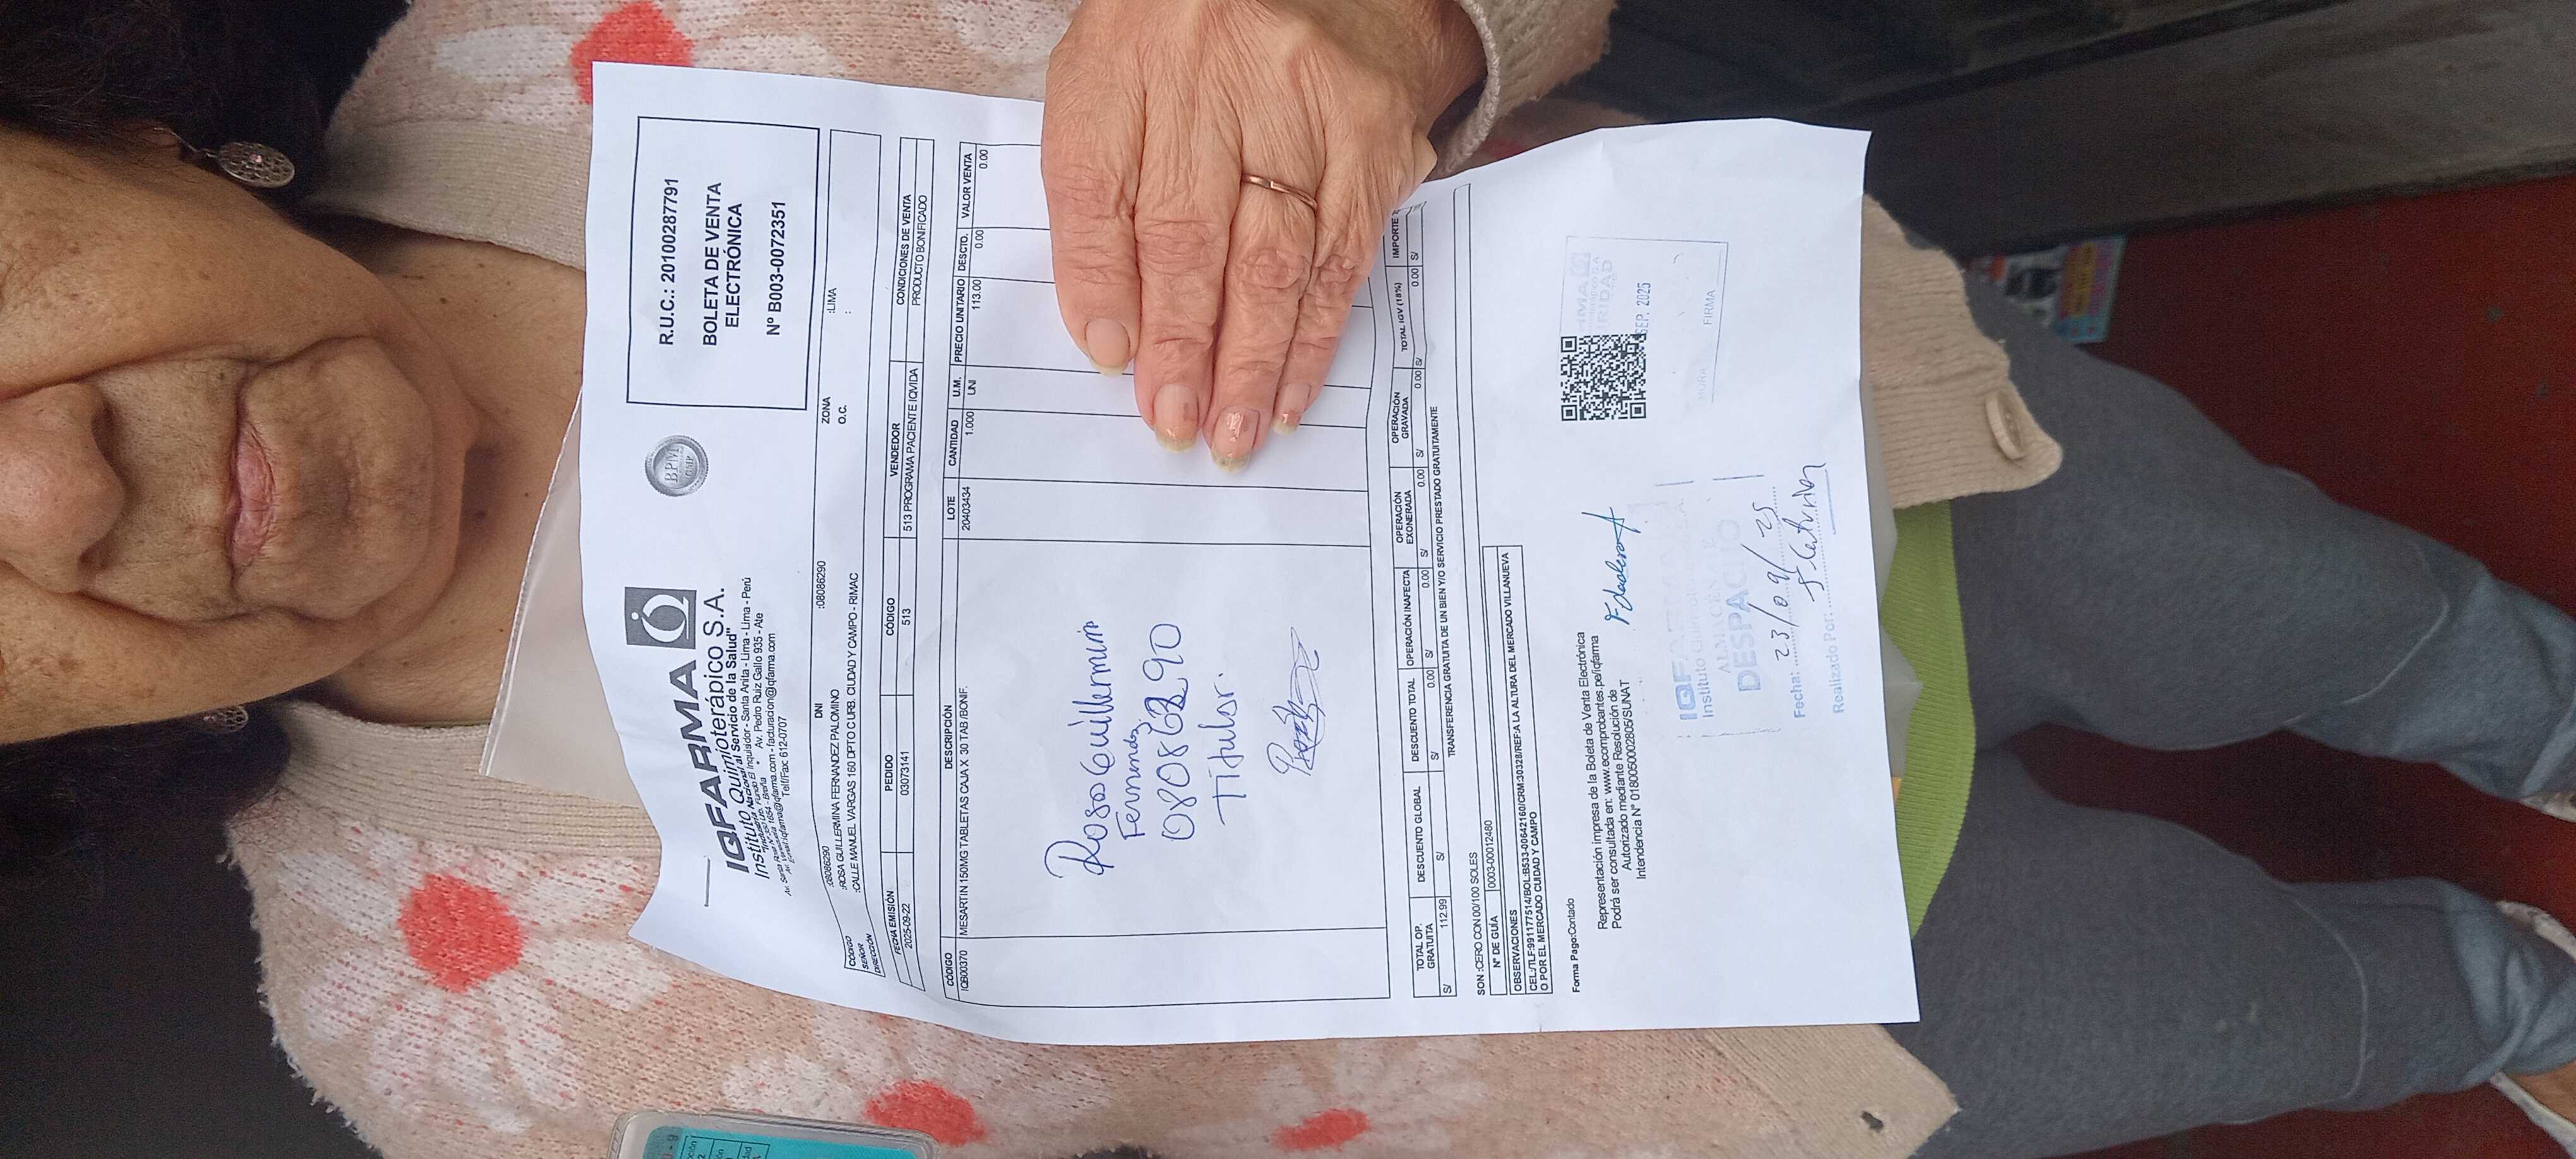 IQFARMA
Instituto Quimioterápico S.A.
"Industria Nacional al Servicio de la Salud"
Telf/Fac: 612-0707
BPM
GMP
R.U.C.: 20100287791
BOLETA DE VENTA
ELECTRÓNICA
Nº B003-0072351
CÓDIGO :08086290 DNI :08086290 ZONA :LIMA
SEÑOR :ROSA GUILLERMINA FERNANDEZ PALOMINO O.C. :
DIRECCIÓN :CALLE MANUEL VARGAS 160 DPTO C URB. CIUDAD Y CAMPO - RIMAC
FECHA EMISIÓN PEDIDO CÓDIGO VENDEDOR CONDICIONES DE VENTA
2025-09-22 03073141 513 513 PROGRAMA PACIENTE IQVIDA PRODUCTO BONIFICADO
CÓDIGO DESCRIPCIÓN LOTE CANTIDAD U.M. PRECIO UNITARIO DESCTO. VALOR VENTA
IQB00370 MESARTIN 150MG TABLETAS CAJA X 30 TAB /BONIF. 20403434 1.000 UNI 113.00 0.00 0.00
Rosa Guillermina
Fernandez
Titular.
TOTAL OP. GRATUITA DESCUENTO GLOBAL DESCUENTO TOTAL OPERACIÓN INAFECTA OPERACIÓN EXONERADA OPERACIÓN GRAVADA TOTAL IGV (18%) IMPORTE
S/ 112.99 S/ S/ 0.00 S/ 0.00 S/ 0.00 S/ 0.00 S/ 0.00 S/
TRANSFERENCIA GRATUITA DE UN BIEN Y/O SERVICIO PRESTADO GRATUITAMENTE
SON :CERO CON 00/100 SOLES
Nº DE GUÍA 0003-00012480
OBSERVACIONES
CEL./TLF:991177514/BOL:B533-00642160/CRM:30328/REF:A LA ALTURA DEL MERCADO VILLANUEVA
O POR EL MERCADO CUIDAD Y CAMPO
Forma Pago:Contado
Representación impresa de la Boleta de Venta Electrónica
Podrá ser consultada en: www.ecomprobantes.pe/iqfarma
Autorizado mediante Resolución de
Intendencia Nº 0180050002805/SUNAT
SEP. 2025
HORA
FIRMA
IQFARMA
ALMACEN
DESPACIO
Fecha: 23/09/25
Realizado Por: